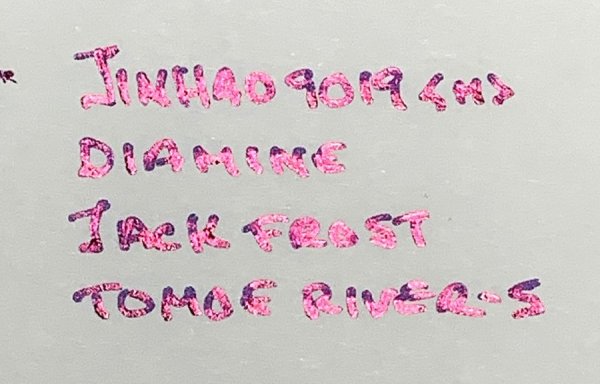 JINHAO 9019 <M>
DIAMINE
JACK FROST
TOMOE RIVER-S